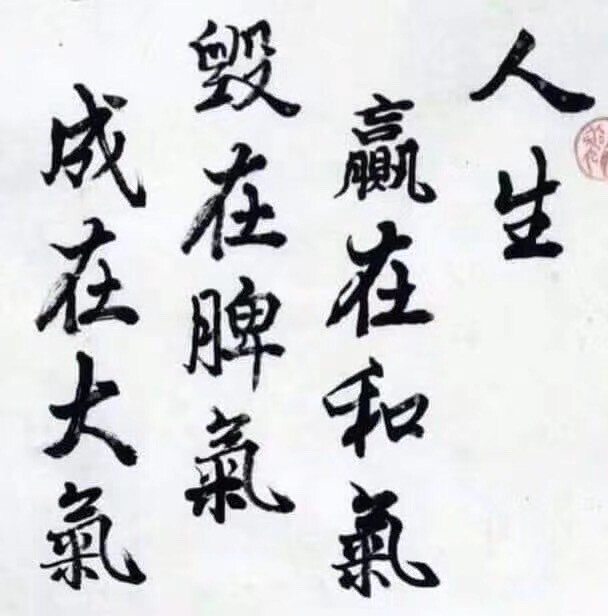 人生
贏在和氣
毀在脾氣
成在大氣